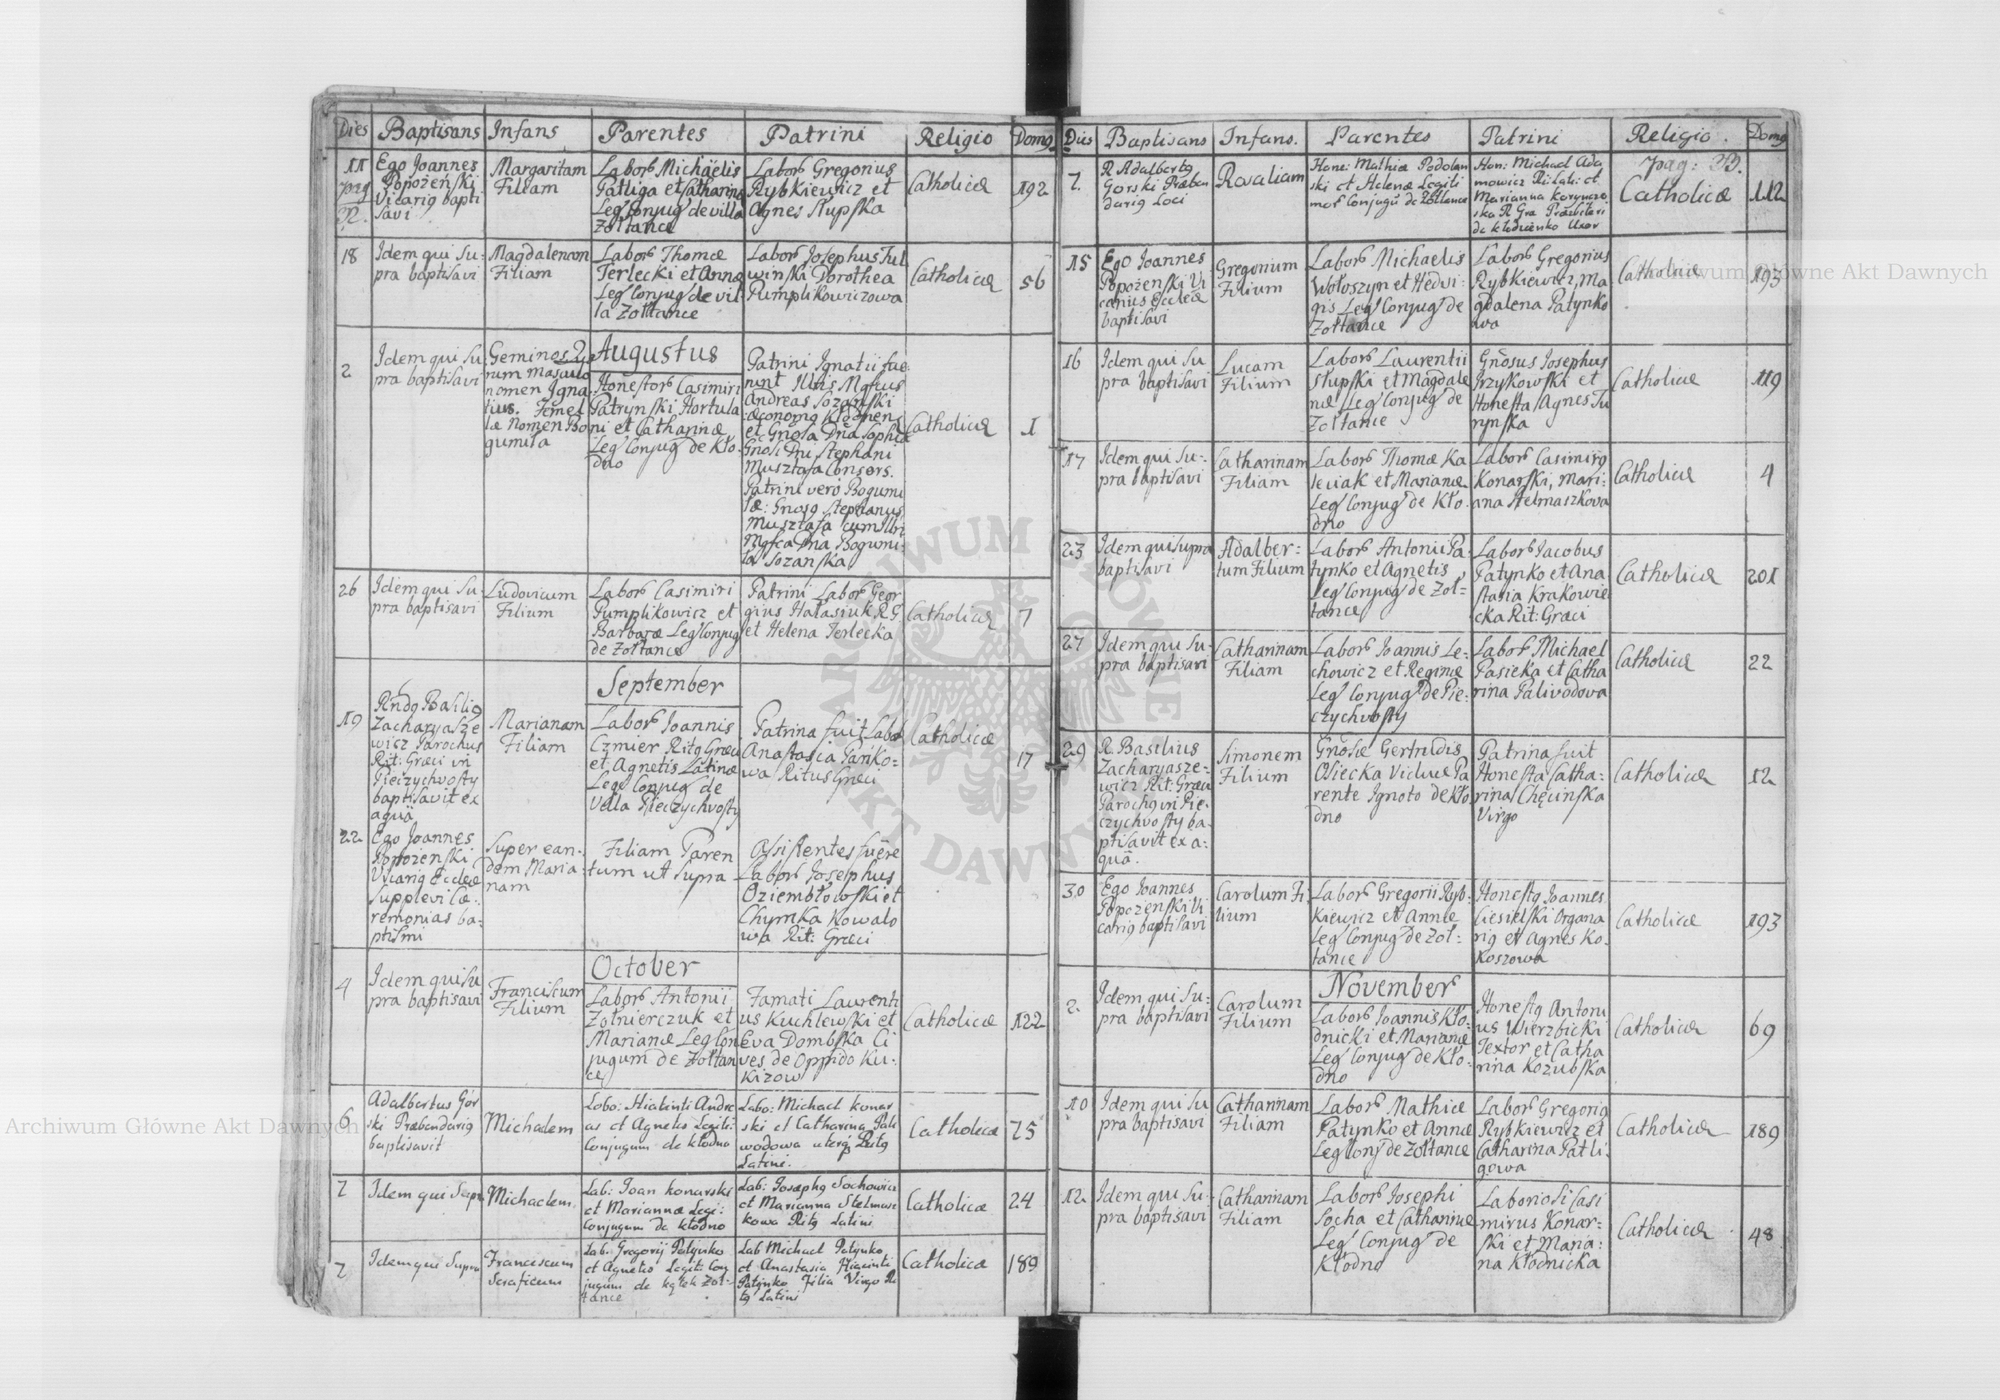 Dies Baptisans Infans Parentes Patrini Religio Domq
11
pag
22.
Ego Joannes
Popożeński
Vicariq bapti
savi
Margaritam
Filiam
Labors Michaëlis
Patliga et Catharinæ
Leg Conjug de villa
Żołtance
Labors Gregorius
Rybkiewicz et
Agnes Słupska
Catholicæ
192
18
Idem qui Su-
pra baptisavi
Magdalenam
Filiam
Labors Thomæ
Terlecki et Annæ
Leg Conjug de vil-
la Żołtance
Labors Josephus Tul
wiński Dorothea
Pumplikowiczowa
Catholicæ
56
Augustus
2
Idem qui Su
pra baptisavi
Geminos
rum Masculo
nomen Igna
tius. Femel
læ Nomen Bo
gumiła
Honestors Casimiri
Patryński Hortula
ni et Catharinæ
Leg Conjug de Kło-
dno
Patrini Ignatii fue
runt Illris Mgfcus
Andreas Sozański
æconomq
et Gnosa Dna Sophia
Gnosi Dni Stephani
Musztafa Consors.
Patrini verò Bogumi
læ: Gnosq Stephanus
Musztafa cum Illri
Mgfca Dna Bogumi-
la Sozańska
Catholicæ
1
26
Idem qui Su-
pra baptisavi
Ludovicum
Filium
Labors Casimiri
Pumplikowicz et
Barbaræ Leg Conjug
de Żołtance
Patrini Labors Geor
gius Hałasiuk R G
et Helena Terlecka
Catholicæ
7
September
19
Rndq Basiliq
Zacharyasze
wicz Parochus
Rit: Græci in
Pieczychvosty
baptisavit ex
aquâ
Marianam
Filiam
Labors Joannis
Czmier Ritq Græci
et Agnetis Latinæ
Leg Conjug de
Villa Pieczychvosty
Patrina fuit Labo
Anastasia Pańko-
wa Ritus Græci
Catholicæ
17
22
Ego Joannes
Popożenski
Vicariq Eccleæ
Supplevi Cæ-
remonias ba-
ptismi
Super ean-
dem Maria-
nam
Filiam Paren
tum ut supra
Assistentes fuere
Labors Josephus
Oziembłowski et
Chymka Kowalo
wa Rit: Græci
October
4
Idem qui Su
pra baptisavi
Franciscum
Filium
Labors Antonii
Żołnierczuk et
Marianæ Leg Con
jugum de Żołtan
ce
Famati Laurenti
us Kuchlewski et
Eva Dombska Ci
ves de Oppido Ku-
kizow
Catholicæ
122
6
Adalbertus Gór
ski Præbendariq
baptisavit
Michaelem
Labo: Hiacinti Andre
as et Agnetis Legiti:
Conjugum de Kłodno
Labo: Michael Konar
ski et Catharina Pali
wodowa uterq Ritq
Latini.
Catholicæ
75
7
Idem qui Supra
Michaelem
Lab: Joan Konarski
et Mariannæ Legi:
Conjugum de Kłodno
Lab: Josephq Sochowicz
et Marianna Stelmasz
kowa Ritq Latini
Catholicæ
24
7
Idem qui Supra
Franciscum
Seraficum
Lab: Gregorij Patynko
et Agnetis Legit: Con
jugum de Żoł-
tance
Lab Michael Patynko
et Anastasia Hiacinti
Patynko Filia Virgo Ri
tq Latini
Catholicæ
189
Dies Baptisans Infans. Parentes Patrini Religio. Domq
pag: 23.
7.
R Adalbertq
Gorski Præben
dariq Loci
Rosaliam
Hone: Mathiæ Podolan
ski et Helenæ Legiti
mor Conjugū de Żołtance
Hon: Michael Ada
mowicz Ri: Lati: et
Marianna Korpnczo
ska R Gra Præsbiteri
de Kłodzienko Uxor
Catholicæ
112
15
Ego Joannes
Popożenski Vi
carius Eccleæ
baptisavi
Gregorium
Filium
Labors Michaelis
Wołoszyn et Hedvi-
gis Leg Conjug de
Żołtance
Labors Gregorius
Rybkiewicz, Ma
gdalena Patynko
wa
Catholicæ
193
16
Idem qui Su
pra baptisavi
Lucam
Filium
Labors Laurentii
Słupski et Magdale
næ Leg Conjug de
Żołtance
Gnosus Josephus
Grzykowski et
Honesta Agnes Tu
rynska
Catholicæ
119
17
Idem qui Su-
pra baptisavi
Catharinam
Filiam
Labors Thomæ Ka
leciak et Marianæ
Leg Conjug de Kło-
dno
Labors Casimirq
Konarski, Mari-
ana Stelmaszkowa
Catholicæ
4
23
Idem qui Supra
baptisavi
Adalber-
tum Filium
Labors Antonii Pa-
tynko et Agnetis
Leg Conjug de Żoł-
tance
Labors Jacobus
Patynko et Ana
stasia Krakowie
cka Rit: Græci
Catholicæ
201
27
Idem qui Su-
pra baptisavi
Catharinam
Filiam
Labors Joannis Le-
chowicz et Reginæ
Leg Conjug de Pie-
czychvosty
Labors Michael
Pasieka et Catha
rina Palivodowa
Catholicæ
22
29
R. Basilius
Zacharyasze-
wicz Rit: Græci
Parochq in Pie-
czychvosty ba-
ptisavit ex a-
quâ.
Simonem
Filium
Gnosæ Gertrudis
Osiecka Viduæ Pa
rente Ignoto de Kło
dno
Patrina fuit
Honesta Catha-
rina Chęcinska
Virgo
Catholicæ
12
30
Ego Joannes
Popożenski Vi
cariq baptisavi
Carolum Fi
lium
Labors Gregorii Ryb-
kiewicz et Annæ
Leg Conjug de Żoł-
tance
Honestq Joannes
Ciesielski Organa
riq et Agnes Ko-
koszowa
Catholicæ
193
November
2
Idem qui Su-
pra baptisavi
Carolum
Filium
Labors Joannis Kło-
dnicki et Marianæ
Leg Conjug de Kło-
dno
Honestq Antoni
us Wierzbicki
Textor et Catha
rina Kozubska
Catholicæ
69
10
Idem qui Su
pra baptisavi
Catharinam
Filiam
Labors Mathiæ
Patynko et Annæ
Leg Conj de Żołtance
Labors Gregoriq
Rybkiewicz et
Catharina Patli-
gowa
Catholicæ
189
12
Idem qui Su-
pra baptisavi
Catharinam
Filiam
Labors Josephi
Socha et Catharinæ
Leg Conjug de
Kłodno
Laboriosi Casi
mirus Konar-
ski et Maria-
na Kłodnicka
Catholicæ
48
Archiwum Główne Akt Dawnych
Archiwum Główne Akt Dawnych
ARCHIWUM GŁÓWNE
AKT DAWNYCH